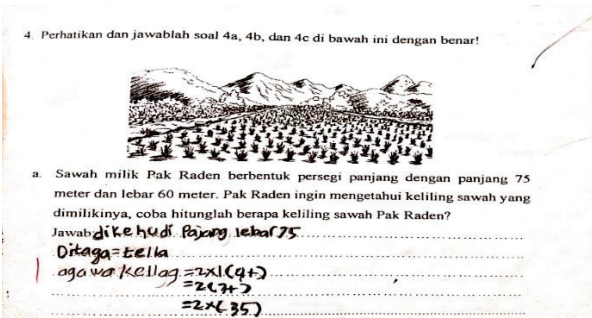 4. Perhatikan dan jawablah soal 4a, 4b, dan 4c di bawah ini dengan benar!
a. Sawah milik Pak Raden berbentuk persegi panjang dengan panjang 75
meter dan lebar 60 meter. Pak Raden ingin mengetahui keliling sawah yang
dimilikinya, coba hitunglah berapa keliling sawah Pak Raden?
Jawab dikehudi Pajang lebar 75
Ditaga=
=2×1(9+)
=2(7+)
=2×(35)